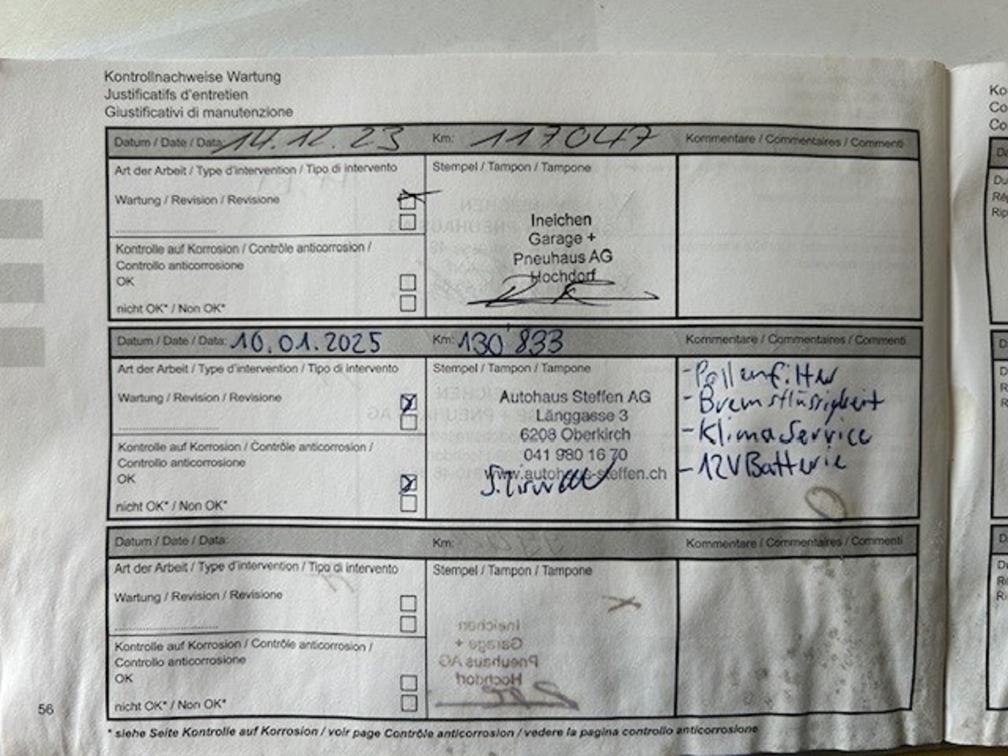 Kontrollnachweise Wartung
Justificatifs d'entretien
Giustificativi di manutenzione
Datum / Date / Data: 14.12.23 Km: 117047 Kommentare / Commentaires / Commenti
Art der Arbeit / Type d'intervention / Tipo di intervento Stempel / Tampon / Tampone
Wartung / Revision / Revisione
Ineichen
Garage +
Pneuhaus AG
Hochdorf
Kontrolle auf Korrosion / Contrôle anticorrosion /
Controllo anticorrosione
OK
nicht OK* / Non OK*
Datum / Date / Data: 10.01.2025 Km: 130'833 Kommentare / Commentaires / Commenti
Art der Arbeit / Type d'intervention / Tipo di intervento Stempel / Tampon / Tampone
Wartung / Revision / Revisione
Autohaus Steffen AG
Länggasse 3
6208 Oberkirch
041 980 16 70
www.autohaus-steffen.ch
- Pollenfilter
- Bremsflüssigkeit
- Klimaservice
- 12V Batterie
Kontrolle auf Korrosion / Contrôle anticorrosion /
Controllo anticorrosione
OK
nicht OK* / Non OK*
Datum / Date / Data: Km: Kommentare / Commentaires / Commenti
Art der Arbeit / Type d'intervention / Tipo di intervento Stempel / Tampon / Tampone
Wartung / Revision / Revisione
Kontrolle auf Korrosion / Contrôle anticorrosion /
Controllo anticorrosione
OK
nicht OK* / Non OK*
56
* siehe Seite Kontrolle auf Korrosion / voir page Contrôle anticorrosion / vedere la pagina controllo anticorrosione